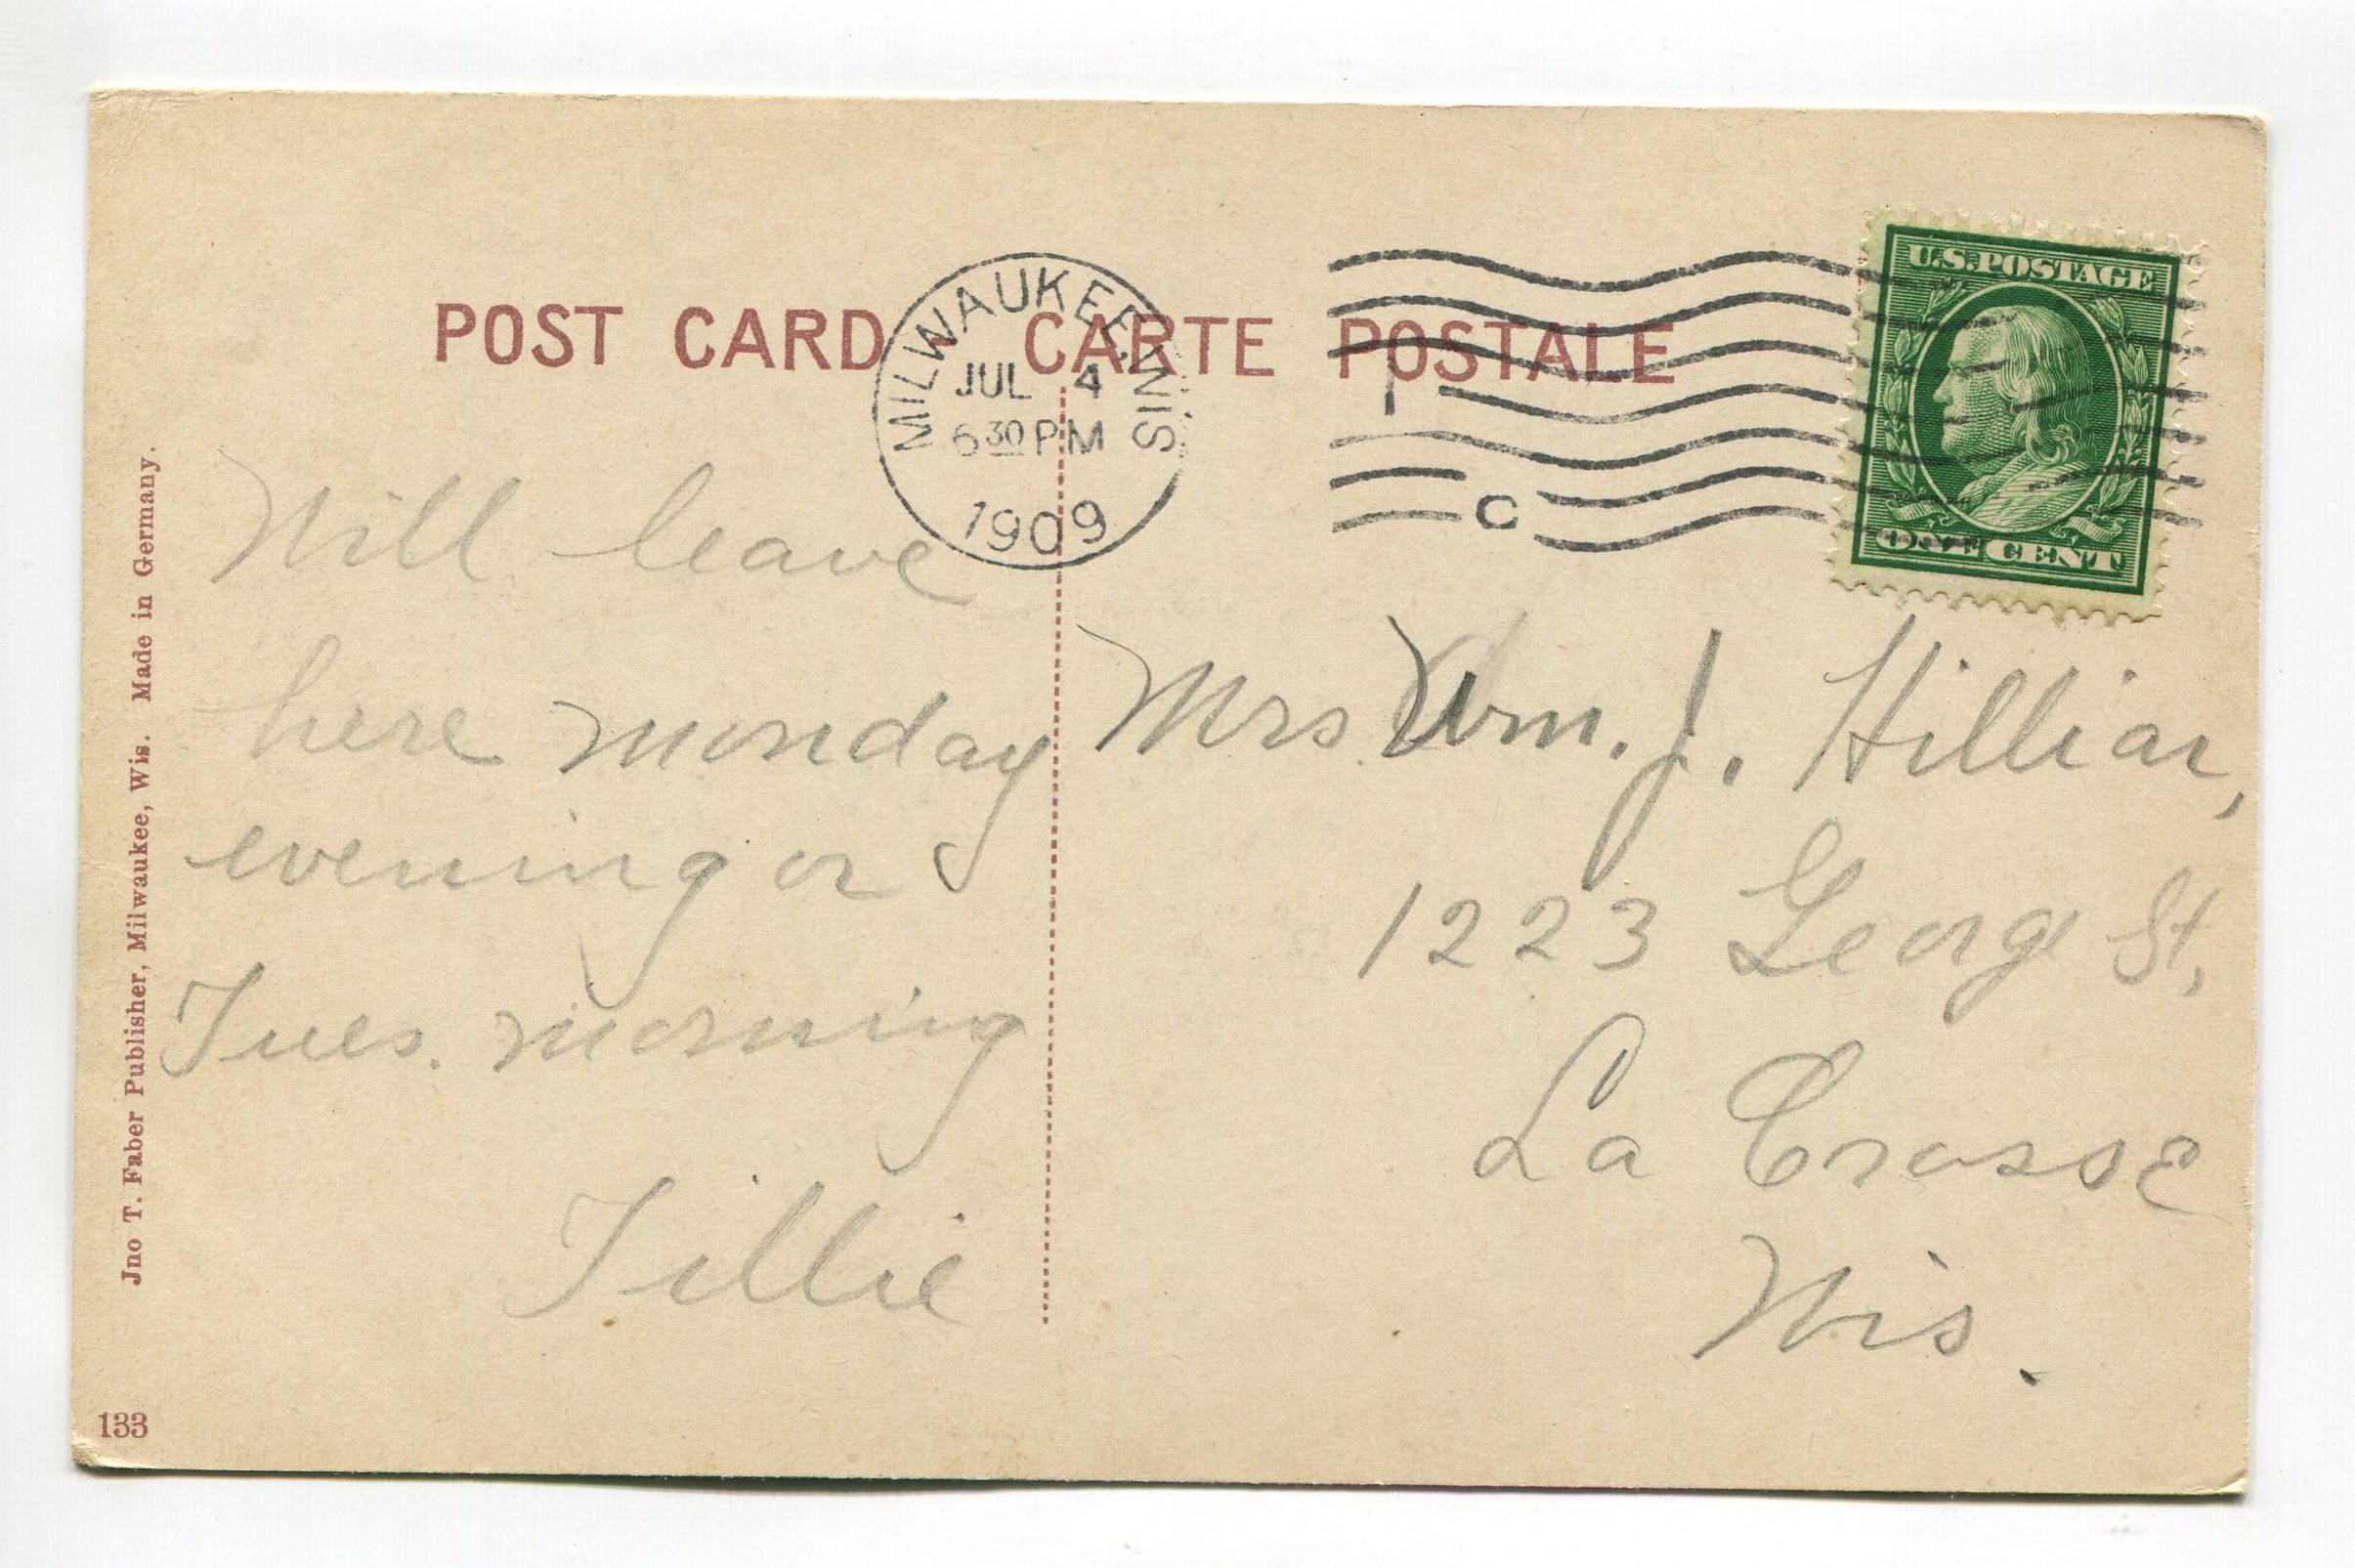 POST CARD CARTE POSTALE
MILWAUKEE, WIS
JUL 4
6 30 PM
1909
1
C
U.S. POSTAGE
ONE CENT
Will leave
here monday
evening or
Tues. morning
Tillie
Mrs. Wm. J. Hilliar,
1223 George St,
La Crosse
Wis.
Jno T. Faber Publisher, Milwaukee, Wis. Made in Germany.
133